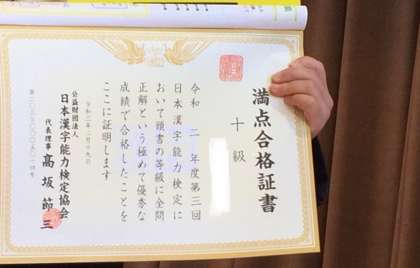 満点合格証書
十級
令和二年度第三回
日本漢字能力検定に
おいて頭書の等級に全問
正解という極めて優秀な
成績で合格したことを
ここに証明します
公益財団法人
日本漢字能力検定協会
代表理事 高坂節三